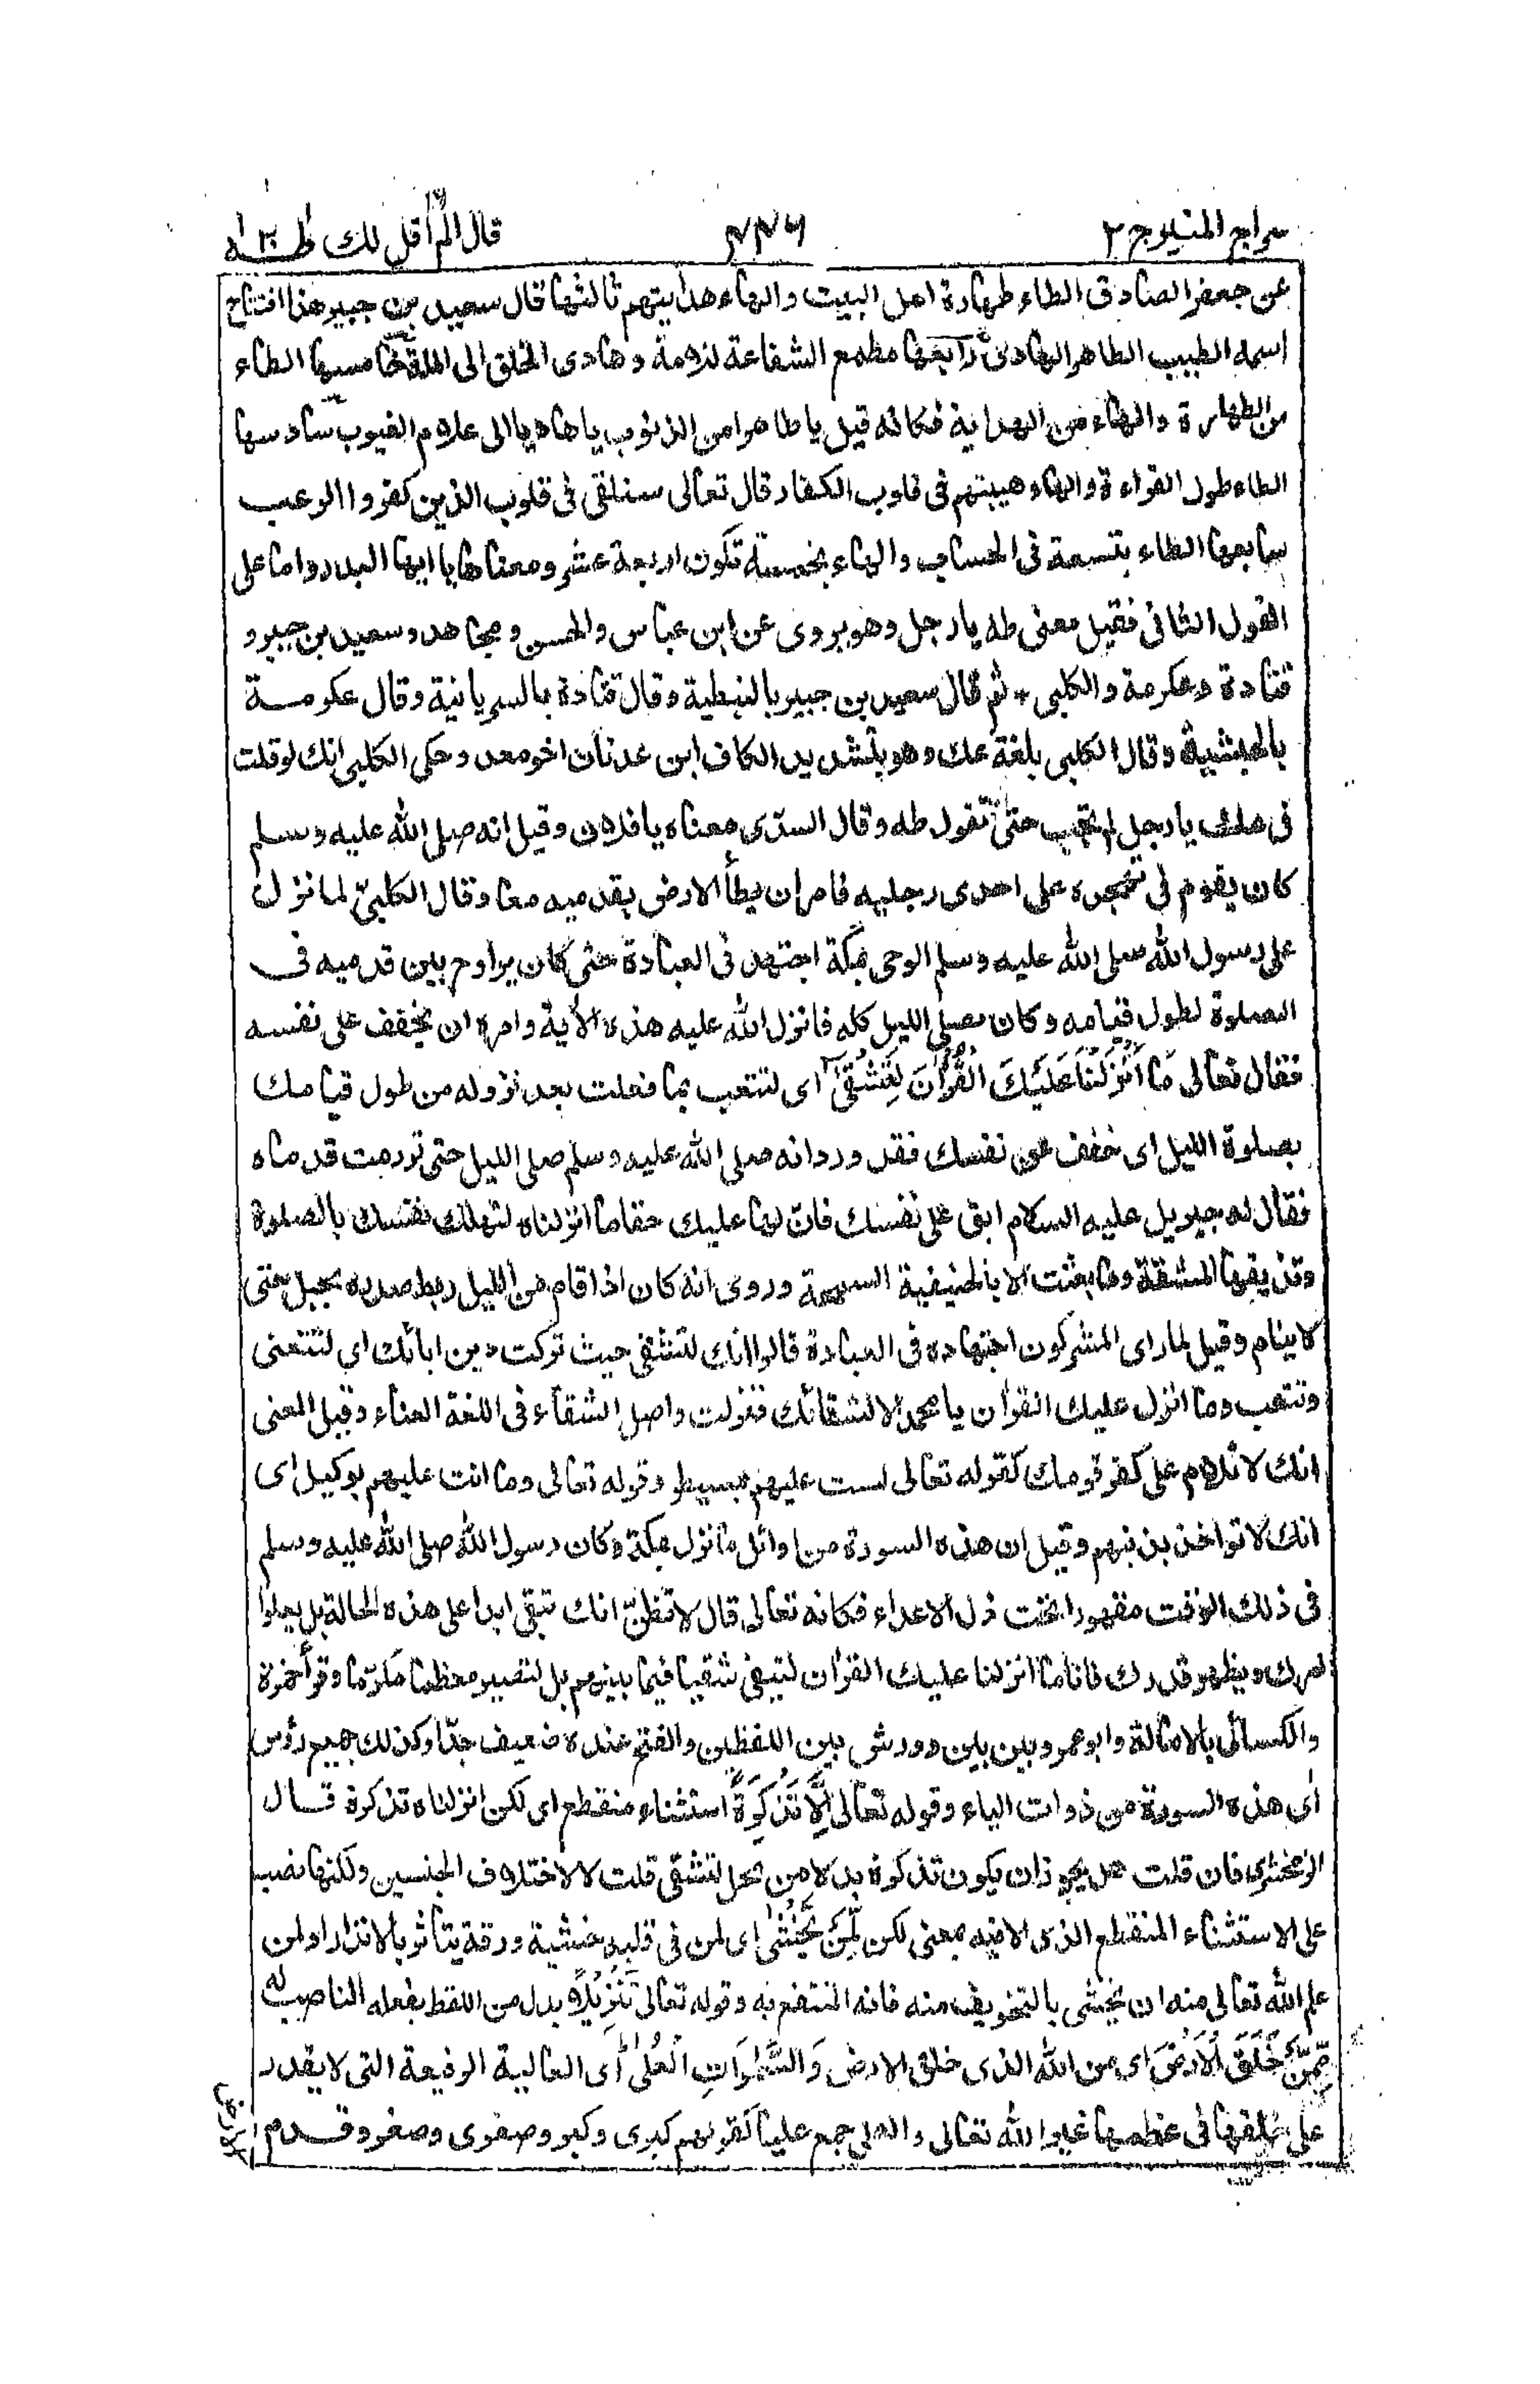 سراج المنير ج ٢
٤٤٦
قال الم أقل لك طٰهٰ
عن جعفر الصادق الطاء طهارة اهل البيت والهاء هدايتهم ثالثها قال سعيد بن جبير هذا افتتاح
اسمه الطيب الطاهر الهادى رابعها مطمع الشفاعة للامة وهادى الخلق الى الملة خامسها الطاء
من الطهارة والهاء من الهداية فكانه قيل يا طاهرا من الذنوب يا هاديا الى علام الغيوب سادسها
الطاء طول القراءة والهاء هيبتهم فى قلوب الكفار قال تعالى سنلقى فى قلوب الذين كفروا الرعب
سابعها الطاء بتسعة فى الحساب والهاء بخمسة تكون اربعة عشر ومعناها يا ايها البدر واما على
القول الثانى فقيل معنى طه يا رجل وهو يروى عن ابن عباس والحسن ومجاهد وسعيد بن جبير و
قتادة وعكرمة والكلبى ثم قال سعيد بن جبير بالنبطية وقال قتادة بالسريانية وقال عكرمة
بالحبشية وقال الكلبى بلغة عك وهو بتشديد الكاف ابن عدنان اخو معد وحكى الكلبى انك لو قلت
فى عك يا رجل لم تجب حتى تقول طه وقال السدّى معناه يا فلان وقيل انه صلى الله عليه وسلم
كان يقوم فى تهجده على احدى رجليه فامر ان يطأ الارض بقدميه معا وقال الكلبىّ لما نزل
على رسول الله صلى الله عليه وسلم الوحى بمكة اجتهد فى العبادة حتى كان يراوح بين قدميه فى
الصلوة لطول قيامه وكان يصلى الليل كله فانزل الله عليه هذه الآية وامره ان يخفف على نفسه
فقال تعالى مَا أَنْزَلْنَا عَلَيْكَ الْقُرْاٰنَ لِتَشْقٰىٓ اى لتتعب بما فعلت بعد نزوله من طول قيامك
بصلوة الليل اى خفف عن نفسك فقد ورد انه صلى الله عليه وسلم صلى الليل حتى تورمت قدماه
فقال له جبريل عليه السلام ابق على نفسك فانّ لها عليك حقا ما انزلناه لتهلك نفسك بالصلوة
وتذيقها المشقة وما بعثت الا بالحنيفية السمحة وروى انه كان اذا قام من الليل ربط صدره بحبل حتى
لا ينام وقيل لما راى المشركون اجتهاده فى العبادة قالوا انك لتشقى حيث تركت دين ابائك اى لتتعنى
وتتعب وما انزل عليك القرآن يا محمد الا لشقائك فنزلت واصل الشقاء فى اللغة العناء وقيل المعنى
انك لا تلام على كفر قومك كقوله تعالى لست عليهم بمسيطر وقوله تعالى وما انت عليهم بوكيل اى
انك لا تواخذ بذنبهم وقيل ان هذه السورة من اوائل ما نزل بمكة وكان رسول الله صلى الله عليه وسلم
فى ذلك الوقت مقهورا تحت ذل الاعداء فكانه تعالى قال لا تظنّ انك تبقى ابدا على هذه الحالة بل يعلوا
امرك ويظهر قدرك فانا ما انزلنا عليك القرآن لتبقى شقيا فيما بينهم بل لتصير معظما مكرّما وقرأ حمزة
والكسائى بالامالة وابو عمرو بين بين وورش بين اللفظين والفتح عنده ضعيف جدّا وكذلك جميع رؤس
اى هذه السورة من ذوات الياء وقوله تعالى اِلَّا تَذْكِرَةً استثناء منقطع اى لكن انزلناه تذكرة قال
الزمخشرى فان قلت هل يجوز ان يكون تذكرة بدلا من محل لتشقى قلت لا لاختلاف الجنسين ولكنها نصب
على الاستثناء المنقطع الذى الا فيه بمعنى لكن لِّمَنْ يَّخْشٰى اى لمن فى قلبه خشية ورقة يتأثر بالانذار او لمن
علم الله تعالى منه ان يخشى بالتخويف منه فانه المنتفع به وقوله تعالى تَنْزِيْلًا بدل من اللفظ بفعله الناصب له
مِّمَّنْ خَلَقَ الْاَرْضَ اى من الله الذى خلق الارض وَالسَّمٰوَاتِ الْعُلٰى اى العالية الرفيعة التى لا يقدر
على خلقها فى عظمها غير الله تعالى والعلى جمع عليا كقولهم كبرى وكبر وصغرى وصغر وقدم
الارض